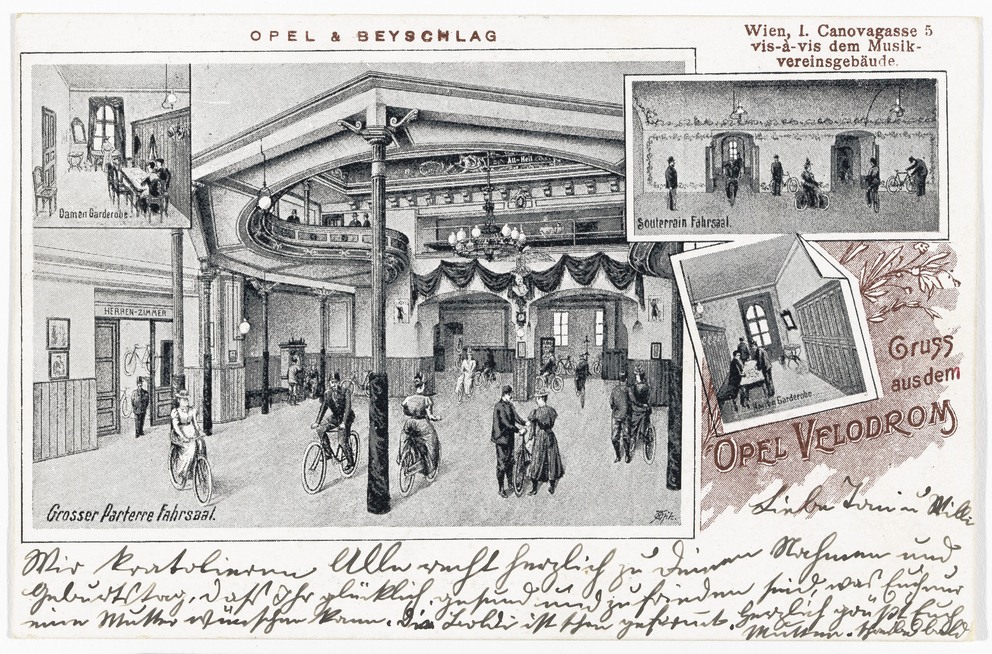 OPEL & BEYSCHLAG
Wien, I. Canovagasse 5
vis-à-vis dem Musik-
vereinsgebäude.
Damen Garderobe.
All-Heil
Souterrain Fahrsaal.
HERREN-ZIMMER
Garderobe
Gruss
aus dem
OPEL VELODROM
Grosser Parterre Fahrsaal.
Liebe und Willi
Wir kratolieren Alle recht herzlich zu Deinen Nahmen und
Geburtstag, daß Ihr glücklich, gesund und zu frieden seid, was Euch nur
eine Mutter wünschen kann. Die Poldi ist schon Herzlich grüßt Euch
Mutter.